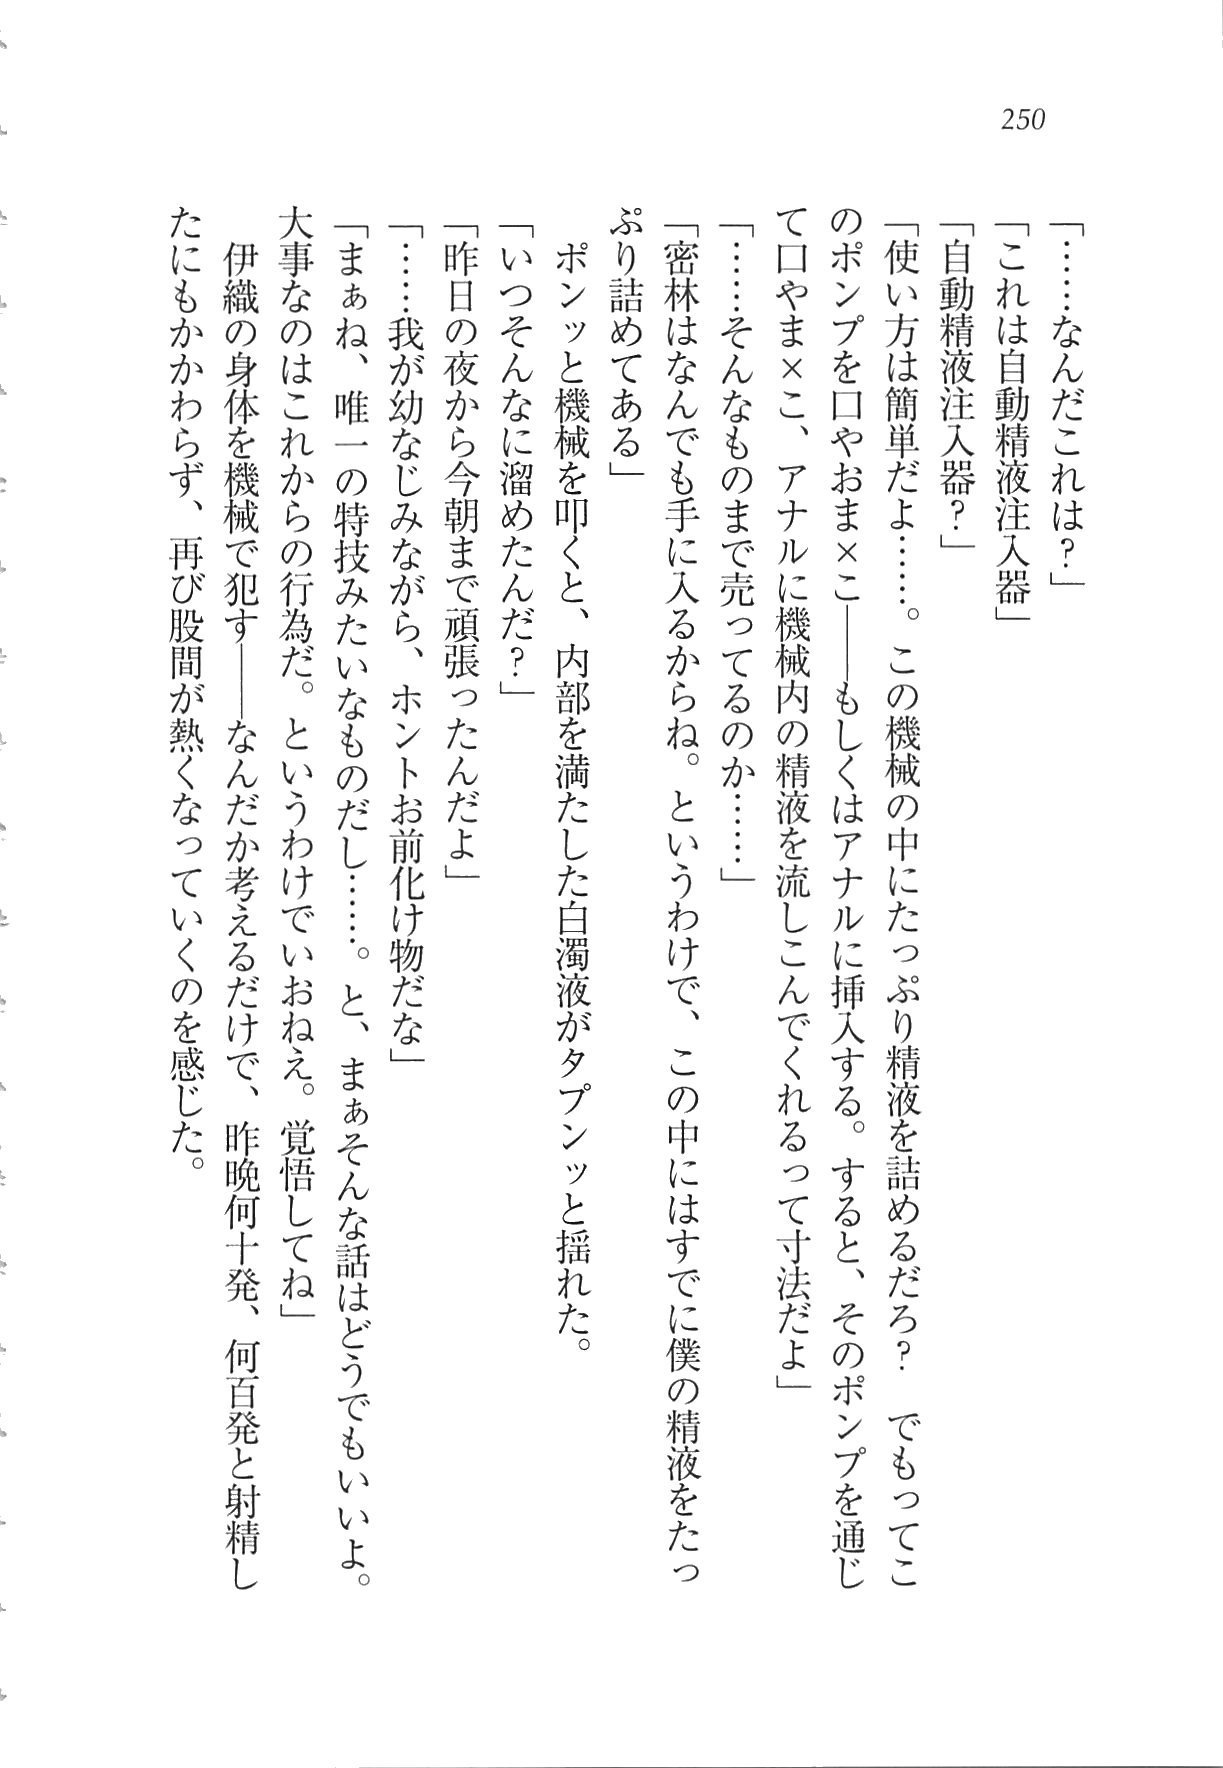 250
「……なんだこれは？」
「これは自動精液注入器」
「自動精液注入器？」
「使い方は簡単だよ……。この機械の中にたっぷり精液を詰めるだろ？　でもってこ
のポンプを口やおま×こ――もしくはアナルに挿入する。すると、そのポンプを通じ
て口やま×こ、アナルに機械内の精液を流しこんでくれるって寸法だよ」
「……そんなものまで売ってるのか……」
「密林はなんでも手に入るからね。というわけで、この中にはすでに僕の精液をたっ
ぷり詰めてある」
　ポンッと機械を叩くと、内部を満たした白濁液がタプンッと揺れた。
「いつそんなに溜めたんだ？」
「昨日の夜から今朝まで頑張ったんだよ」
「……我が幼なじみながら、ホントお前化け物だな」
「まぁね、唯一の特技みたいなものだし……。と、まぁそんな話はどうでもいいよ。
大事なのはこれからの行為だ。というわけでいおねえ。覚悟してね」
　伊織の身体を機械で犯す――なんだか考えるだけで、昨晩何十発、何百発と射精し
たにもかかわらず、再び股間が熱くなっていくのを感じた。